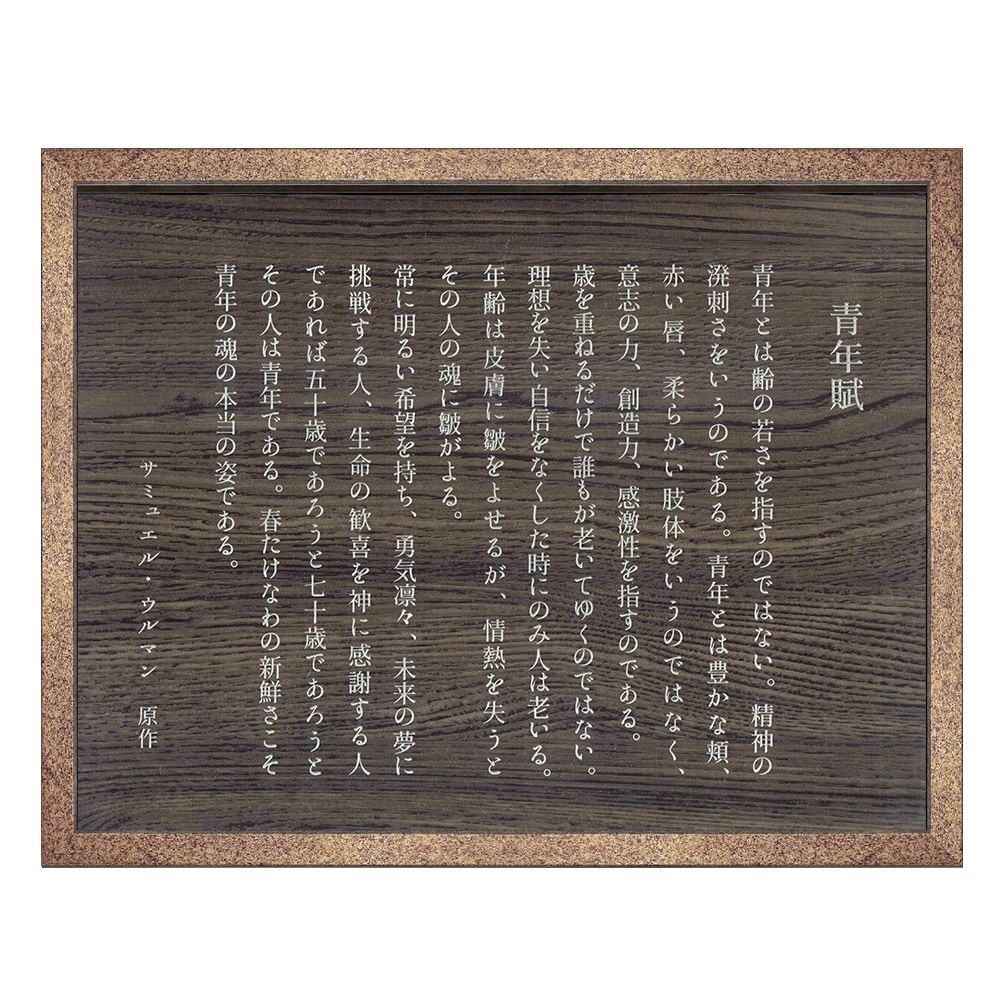 青年賦
青年とは齢の若さを指すのではない。精神の
溌刺さをいうのである。青年とは豊かな頬、
赤い唇、柔らかい肢体をいうのではなく、
意志の力、創造力、感激性を指すのである。
歳を重ねるだけで誰もが老いてゆくのではない。
理想を失い自信をなくした時にのみ人は老いる。
年齢は皮膚に皺をよせるが、情熱を失うと
その人の魂に皺がよる。
常に明るい希望を持ち、勇気凛々、未来の夢に
挑戦する人、生命の歓喜を神に感謝する人
であれば五十歳であろうと七十歳であろうと
その人は青年である。春たけなわの新鮮さこそ
青年の魂の本当の姿である。
サミュエル・ウルマン 原作